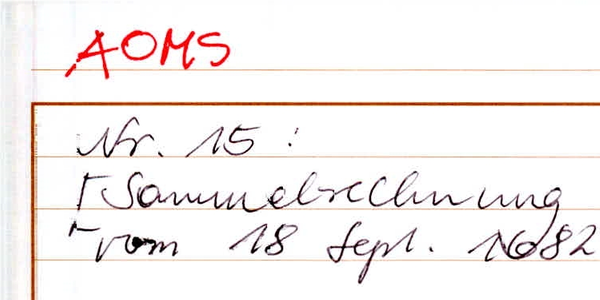 AOMS
Nr. 15:
Sammelrechnung
vom 18 Sept. 1682